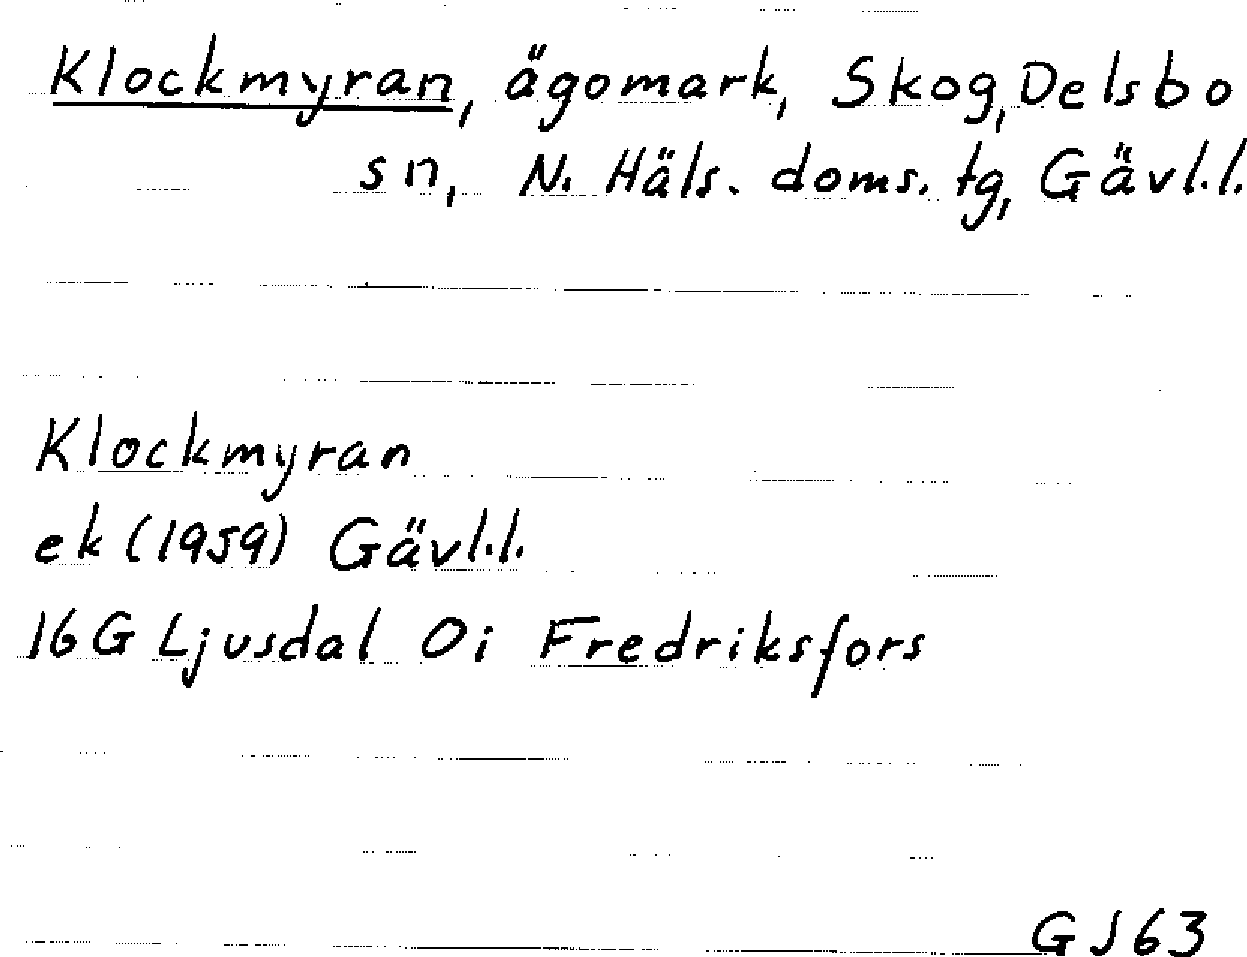 Klockmyran, ägomark, Skog, Delsbo
sn, N. Häls. doms. tg, Gävl.l.
Klockmyran
ek (1959) Gävl.l.
16 G Ljusdal 0i Fredriksfors
GJ 63